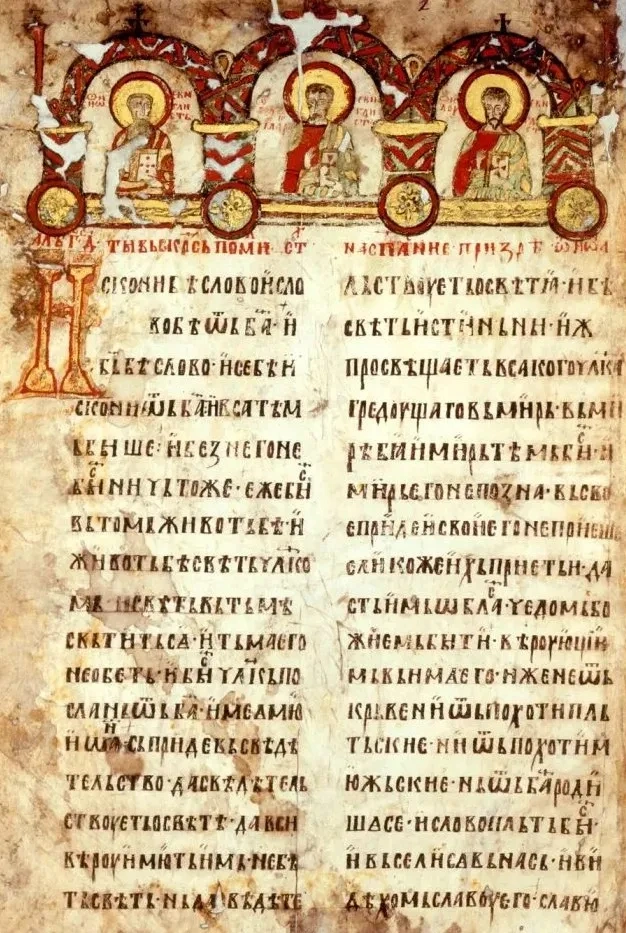 Искони бѣ слово и сло
во бѣ ѿ ь б҃а · и
б҃ь бѣ слово · и се бѣ и
скони ѿ ь б҃а · и вса тѣм
ь бише · и без него не
биⷭ҇ ничьтоже · еже биⷭ҇
вь томь животь бѣ · и
животь бѣ свѣть чл҃ко
мь · и свѣть вь тьмѣ
свѣтить са · и тьма его
не обеть · и биⷭ҇ чл҃кь по
слань ѿ ь б҃а · име амю
иѡⷩ҇а · сь приде вь свѣдѣ
тельство · да свѣдѣтель
ствоуеть о свѣтѣ · да вси
вѣроу имють имь · не бѣ
ть свѣть · нь да свѣдѣте
льствоуеть о свѣтѣ · и бѣ
свѣть истиньни · иж
просвѣщаеть всакого чл҃ка
гредоущаго вь мирь · вь ми
рѣ бѣ и мирь тѣмь биⷭ҇ · и
мирь его не позна · вь сво
е приде и свои его не приеше
елико же ихь приеть и · да
сть имь ѡблаⷭ҇ · чедомь бо
жиемь бити · вѣроующи
мь вь има его · иже не ѿ ь
крьве ни ѿ ь похоти пль
тьские · ни ѿ ь похоти м
южьские · нь ѿ ь б҃а роди
ше се · и слово пльть биⷭ҇ ·
и всели са вь нась · и ви
дѣхомь славоу его · славю